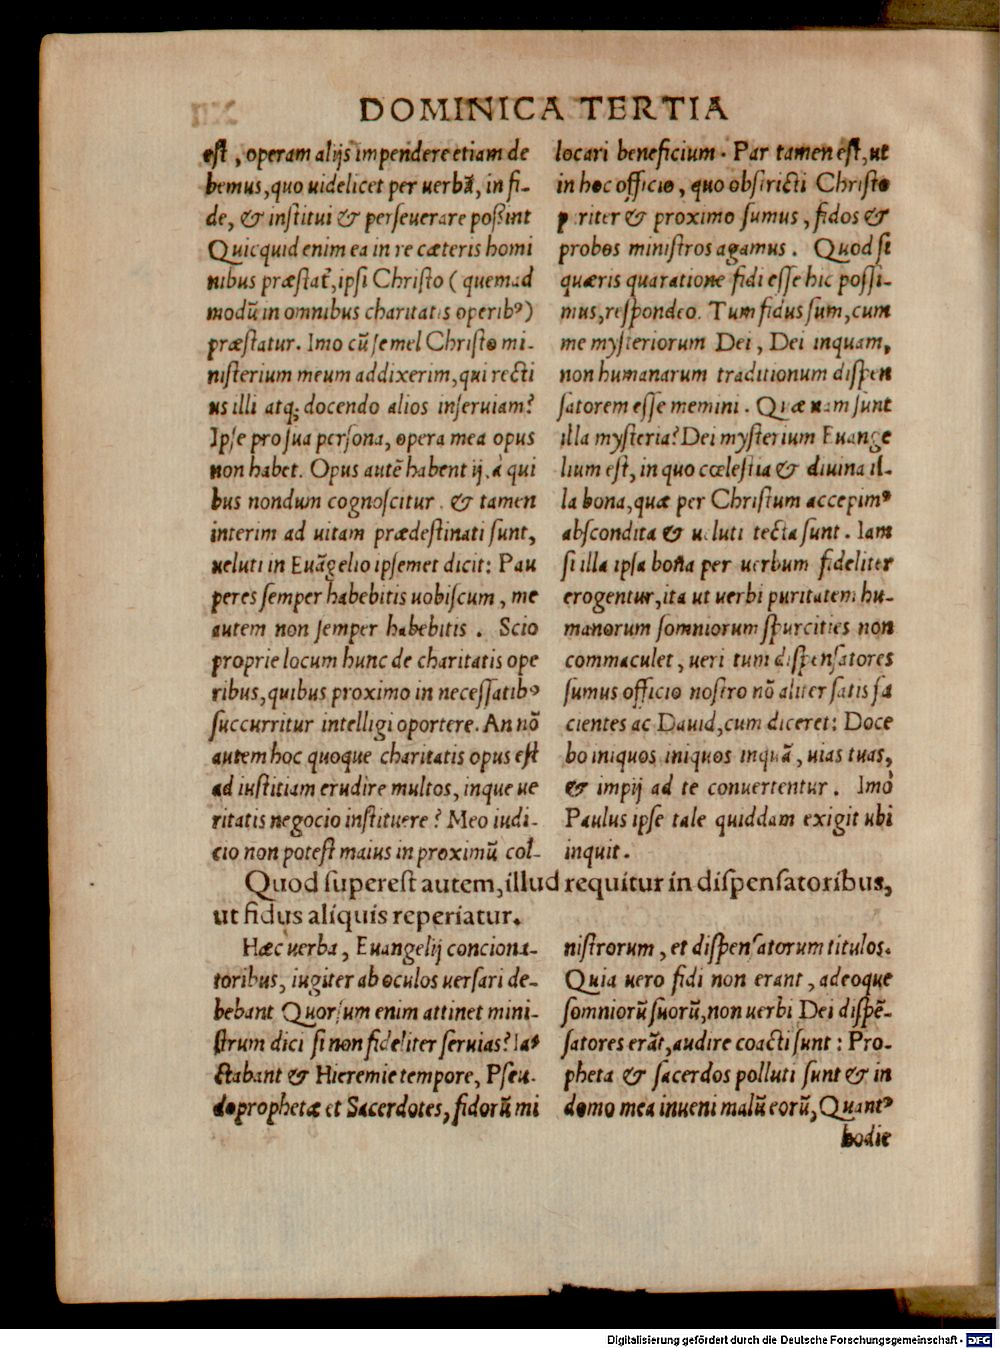 DOMINICA TERTIA
est, operam alijs impendere etiam de
bemus, quo uidelicet per uerbũ, in fi-
de, & institui & perseuerare poßint
Quicquid enim ea in re cæteris homi
nibus præstat̃, ipsi Christo ( quemad
modũ in omnibus charitatis operibꝰ)
præstatur. Imo cũ semel Christo mi-
nisterium meum addixerim, qui recti
us illi atq; docendo alios inseruiam?
Ipse pro sua persona, opera mea opus
non habet. Opus autẽ habent ij, à qui
bus nondum cognoscitur. & tamen
interim ad uitam prædestinati sunt,
ueluti in Euãgelio ipsemet dicit: Pau
peres semper habebitis uobiscum, me
autem non semper habebitis. Scio
proprie locum hunc de charitatis ope
ribus, quibus proximo in necessatibꝰ
succurritur intelligi oportere. An nõ
autem hoc quoque charitatis opus est
ad iustitiam erudire multos, inque ue
ritatis negocio instituere? Meo iudi-
cio non potest maius in proximũ col-
locari beneficium. Par tamen est, ut
in hoc officio, quo obstricti Christo
pariter & proximo sumus, fidos &
probos ministros agamus. Quod si
quæris qua ratione fidi esse hic possi-
mus, respondeo. Tum fidus sum, cum
me mysteriorum Dei, Dei inquam,
non humanarum traditionum dispen
satorem esse memini. Quæ nam sunt
illa mysteria? Dei mysterium Euange
lium est, in quo cœlestia & diuina il-
la bona, quæ per Christum accepimꝰ
abscondita & ueluti tecta sunt. Iam
si illa ipsa bona per uerbum fideliter
erogentur, ita ut uerbi puritatem hu-
manorum somniorum spurcities non
commaculet, ueri tum dispensatores
sumus officio nostro nõ aliter satis fa
cientes ac Dauid, cum diceret: Doce
bo iniquos iniquos inquã, uias tuas,
& impij ad te conuertentur. Imò
Paulus ipse tale quiddam exigit ubi
inquit.
Quod superest autem, illud requitur in dispensatoribus,
ut fidus aliquis reperiatur.
Hæc uerba, Euangelij conciona-
toribus, iugiter ab oculos uersari de-
bebant Quorsum enim attinet mini-
strum dici si non fideliter seruias? Ia-
ctabant & Hieremie tempore, Pseu-
doprophetæ et Sacerdotes, fidorũ mi
nistrorum, et dispensatorum titulos.
Quia uero fidi non erant, adeoque
somniorũ suorũ, non uerbi Dei dispẽ-
satores erãt, audire coacti sunt: Pro-
pheta & sacerdos polluti sunt & in
domo mea inueni malũ eorũ, Quantꝰ
hodie
Digitalisierung gefördert durch die Deutsche Forschungsgemeinschaft - DFG